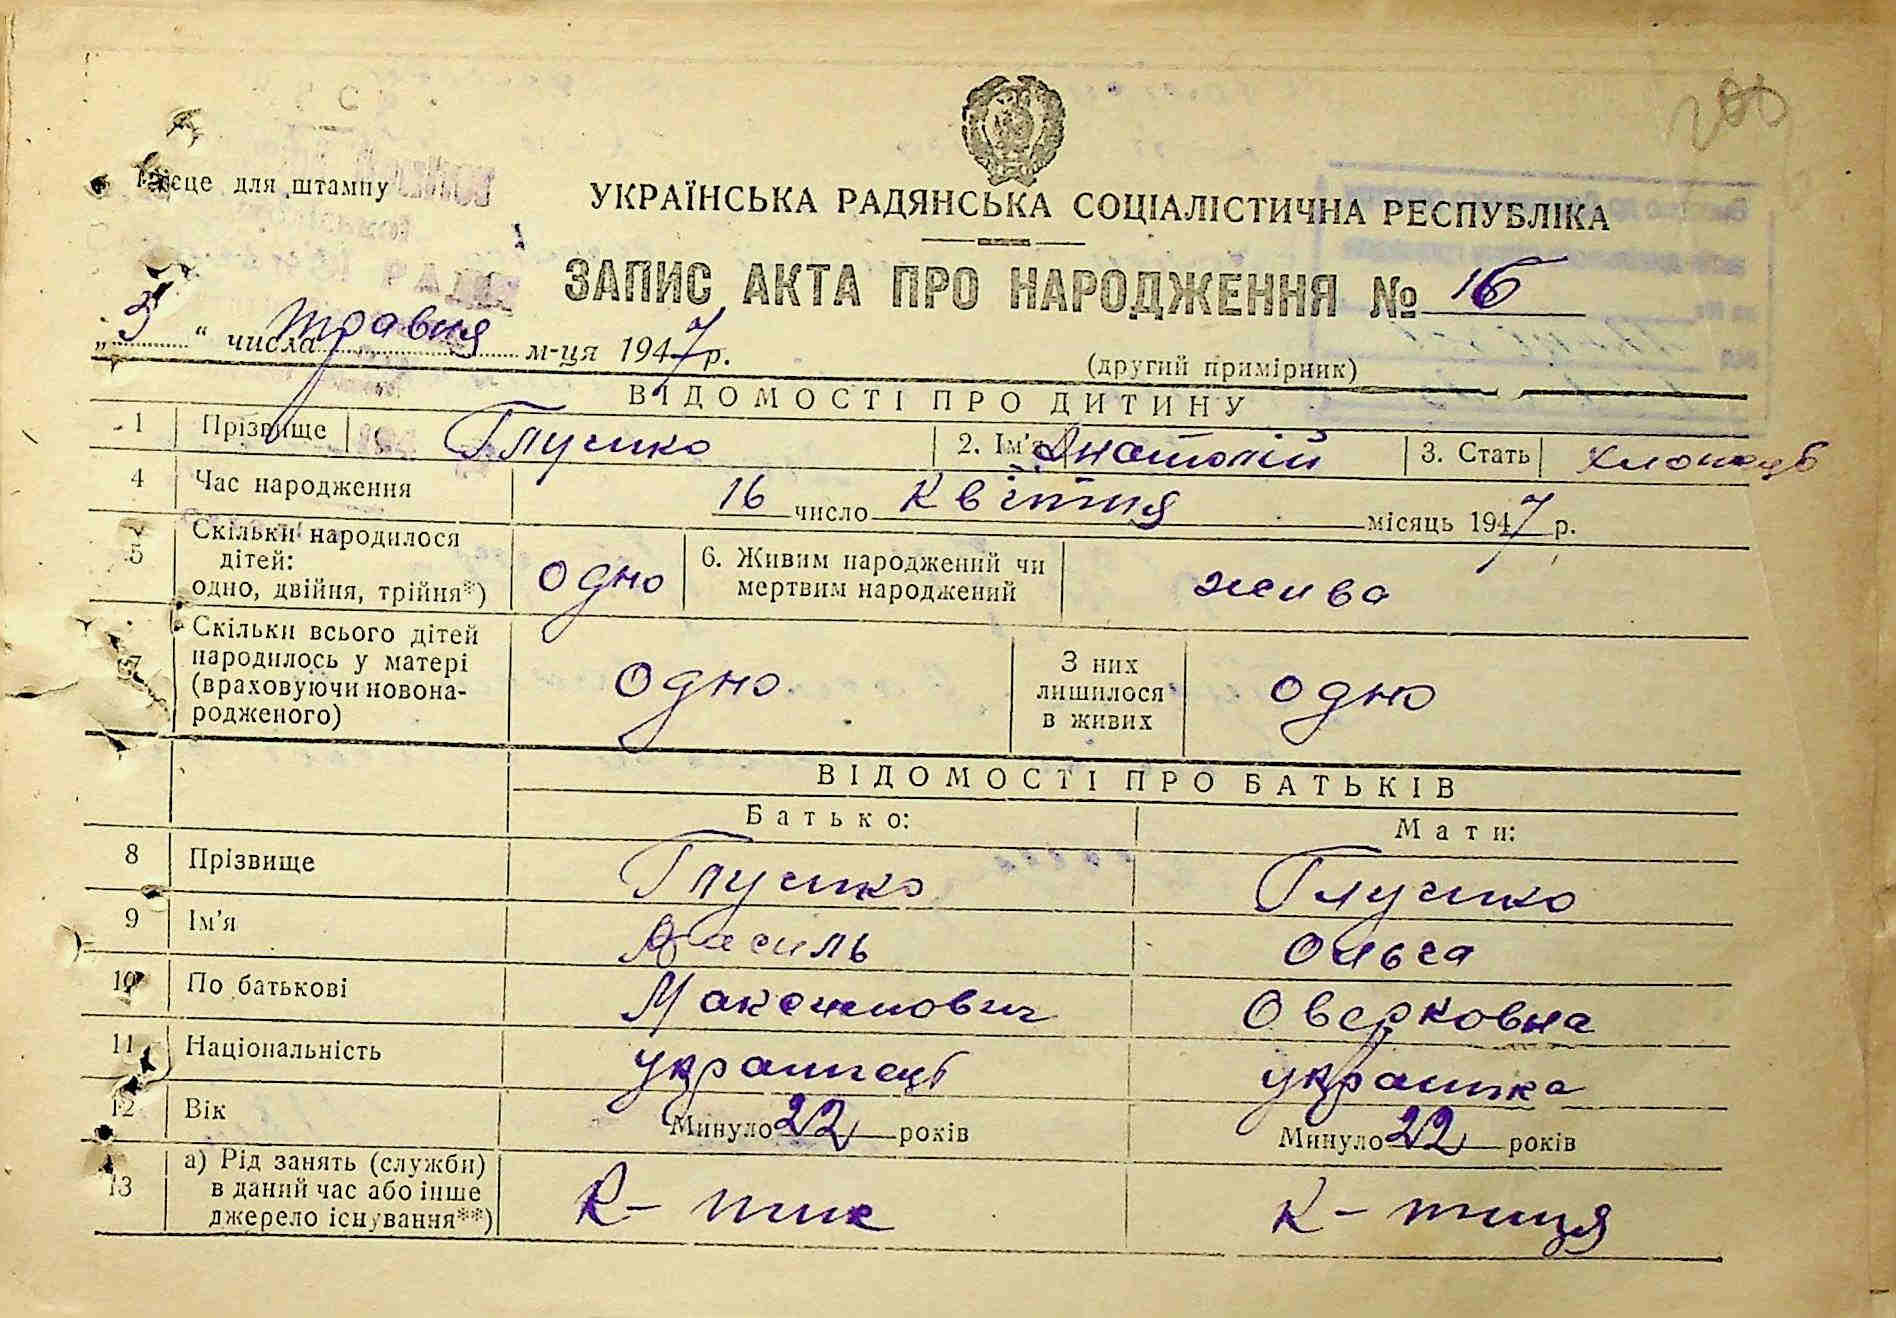 200
Місце для штампу
УКРАЇНСЬКА РАДЯНСЬКА СОЦІАЛІСТИЧНА РЕСПУБЛІКА
ЗАПИС АКТА ПРО НАРОДЖЕННЯ № 16
„3“ числа травня м-ця 1947 р.
(другий примірник)
ВІДОМОСТІ ПРО ДИТИНУ
1 Прізвище Глушко 2. Ім'я Анатолій 3. Стать хлопець
4 Час народження 16 число квітня місяць 1947 р.
5 Скільки народилося дітей: одно, двійня, трійня*) одно 6. Живим народжений чи мертвим народжений жива
7 Скільки всього дітей народилось у матері (враховуючи новонародженого) одно З них лишилося в живих одно
ВІДОМОСТІ ПРО БАТЬКІВ
Батько: Мати:
8 Прізвище Глушко Глушко
9 Ім'я Василь Ольга
10 По батькові Максимович Оверковна
11 Національність українець українка
12 Вік Минуло 22 років Минуло 22 років
13 а) Рід занять (служби) в даний час або інше джерело існування**) К-тник К-тниця